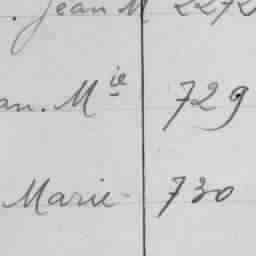 . Jean M 2272
an. Mie 729
Marie - 730